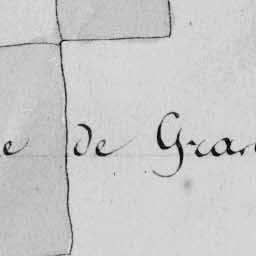 e de Gra